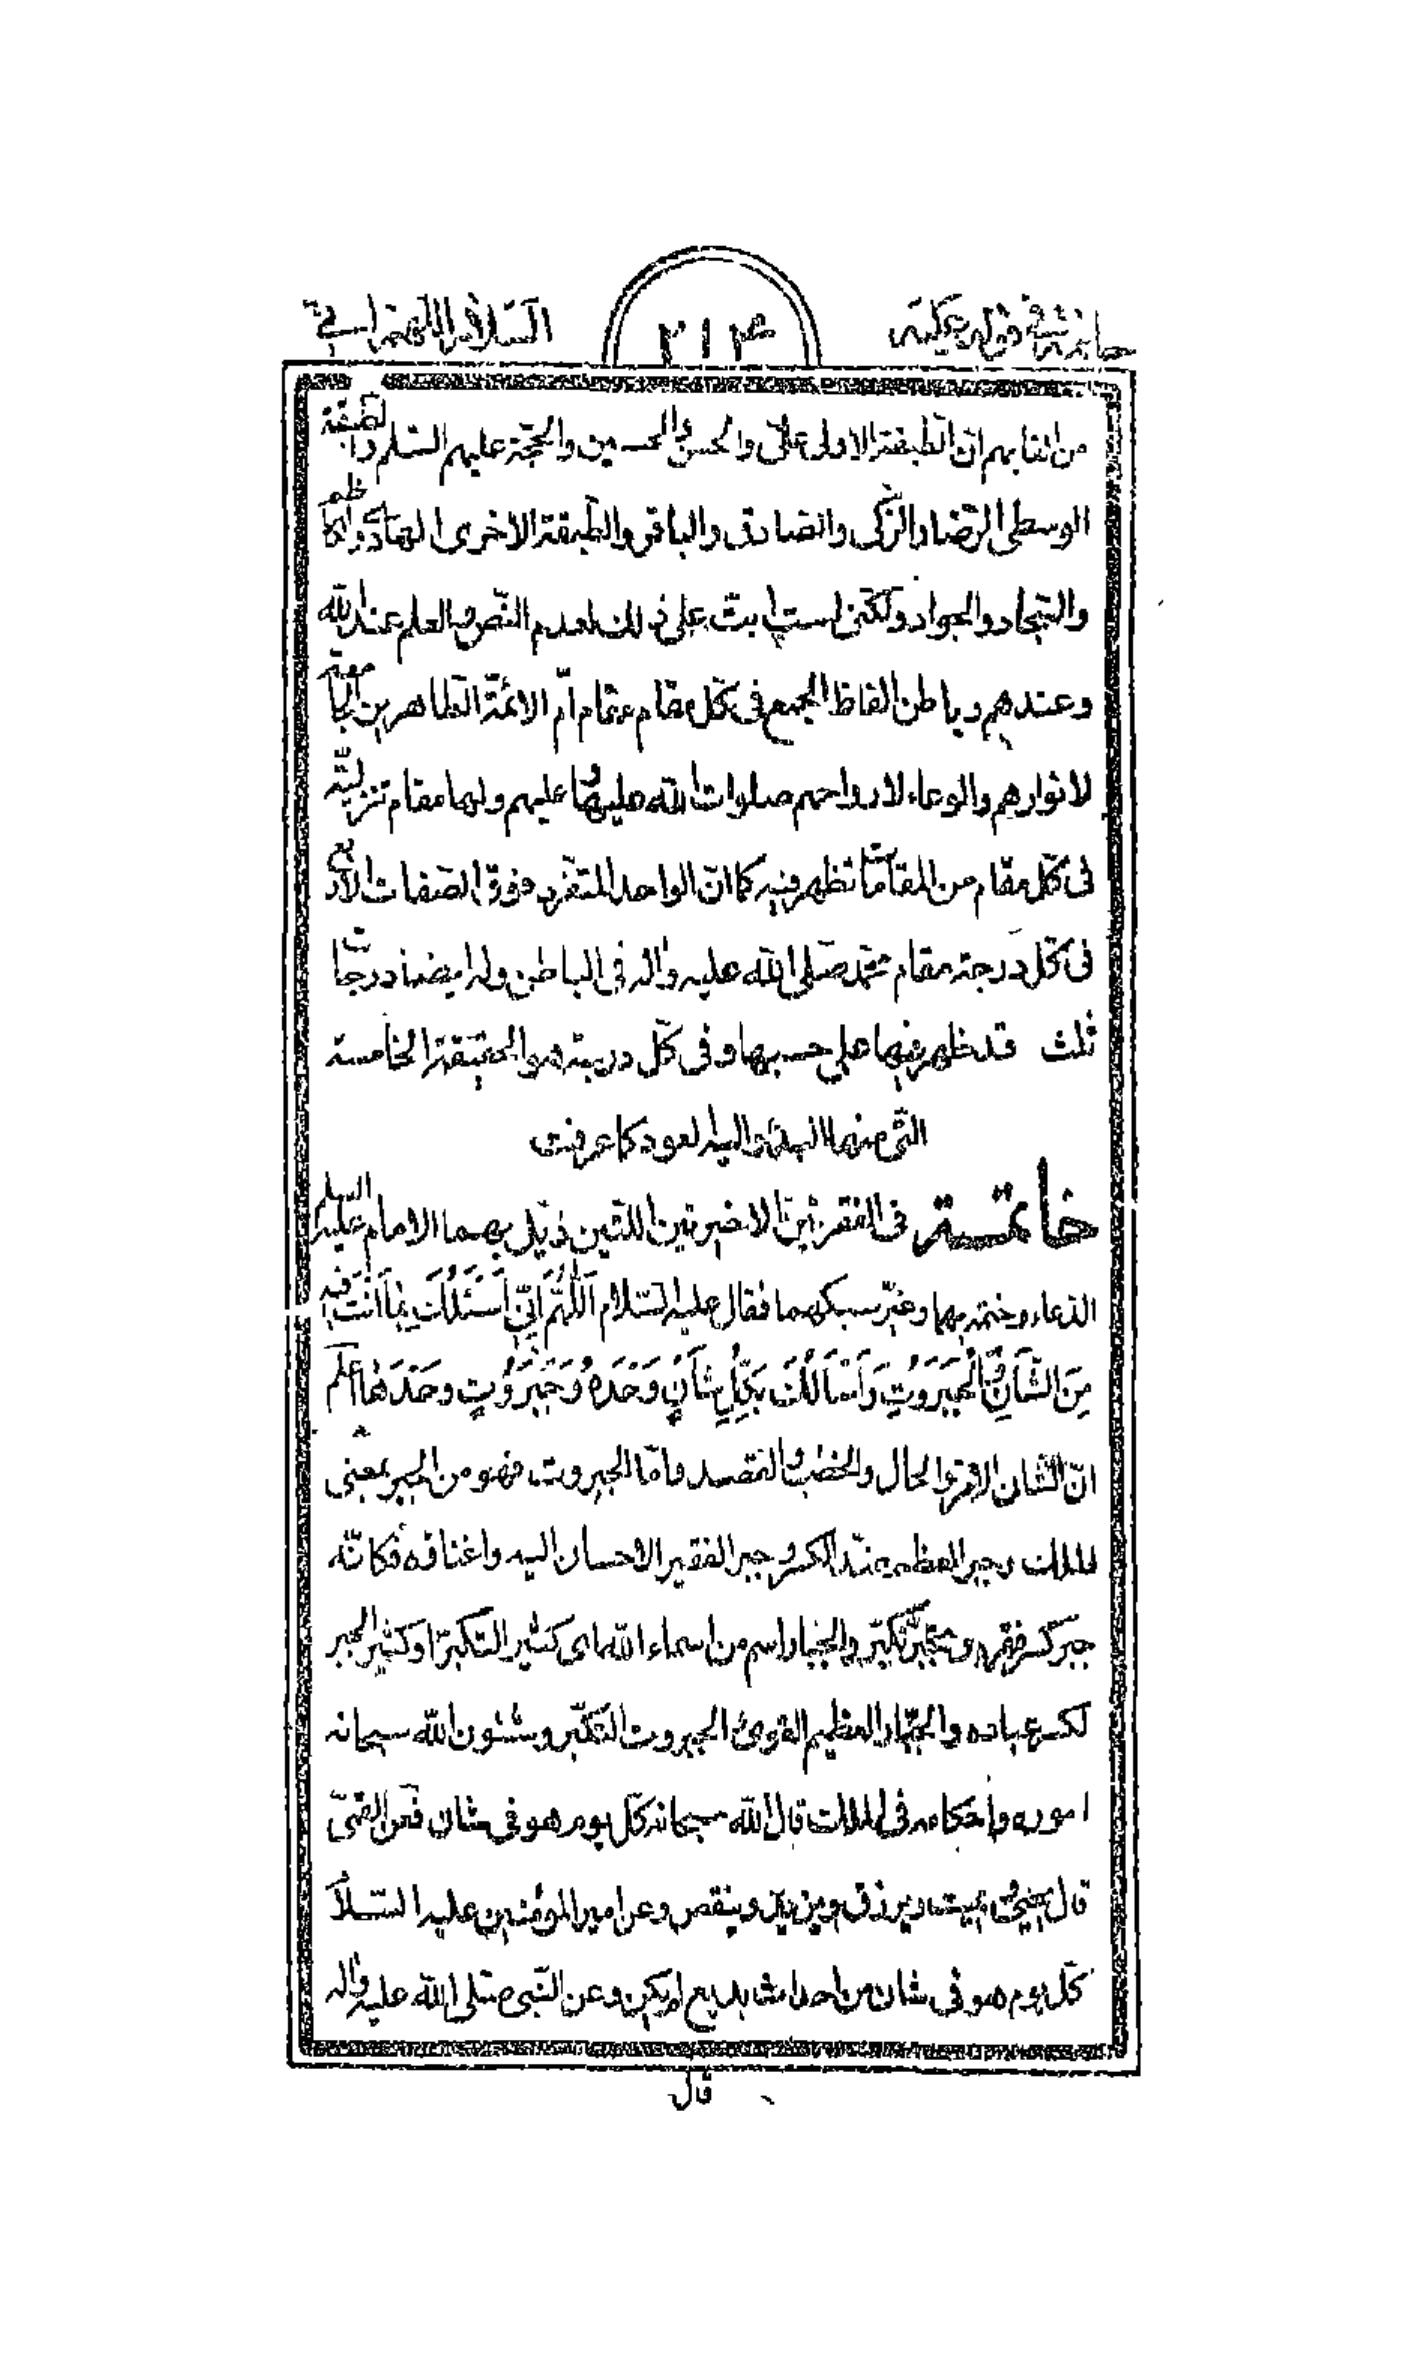 خاتمة فی قوله علیه السلام اللهم انی
٢١٣
من القابهم ان الطبقة الاولی علیّ والحسن والحسین والحجّة علیهم السّلم والطبقة
الوسطی الرّضا والزّکی والصّادق والباقر والطّبقة الاخری الهادی والکاظم
والسّجاد والجواد ولکنّی لست ابتّ علی ذلك لعدم النّص والعلم عند اللّه
وعندهم وباطن الفاظ الجمع فی کلّ مقام مقام امّ الائمّة الطّاهرین
لانوارهم والوعاء لارواحهم صلوات اللّه علیها وعلیهم ولها مقام تنزّلیّة
فی کلّ مقام من المقامات تظهر فیه کما انّ الواحد المتفرّد فوق الصّفات الاربع
فی کلّ درجة مقام محمّد صلّی اللّه علیه واله فی الباطن وله ایضا درجات
ثلث قد ظهر فیها علی حسبها وفی کلّ درجة هو الحقیقة الخامسة
الّتی منها البدء والیه العود کما عرفت
خاتمة فی الفقرتین الاخیرتین اللّتین ذیّل بهما الامام علیه السلم
الدّعاء وختمه بهما وغیّر سبکهما فقال علیه السّلام اَللّهُمَّ اِنّی اَسْئَلُكَ بِمَا اَنْتَ فیهِ
مِنَ الشَّأنِ وَالْجَبَرُوتِ وَاَسْاَلُكَ بِکُلِّ شَأنٍ وَحْدَهُ وَجَبَرُوتٍ وَحْدَهَا اعلم
انّ الشّان الامر والحال والخطب والقصد وامّا الجبروت فهو من الجبر بمعنی
الملك وجبر العظم ضدّ الکسر وجبر الفقیر الاحسان الیه واغناؤه فکانّه
جبر کسر فقره وتجبّر تکبّر والجبّار اسم من اسماء اللّه ای کثیر التّکبّر او کثیر الجبر
لکسر عباده والجبّار العظیم القویّ الجبروت التّکبّر وشئون اللّه سبحانه
اموره واحکامه فی الملك قال اللّه سبحانه کلّ یوم هو فی شان فعن القمّی
قال یحیی ویمیت ویرزق ویزید وینقص وعن امیر المؤمنین علیه السّلام
کلّ یوم هو فی شان من احداث بدیع لم یکن وعن النّبی صلّی اللّه علیه واله
قال